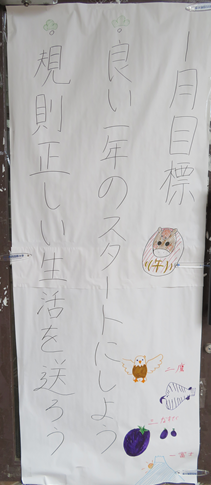 1月目標
良い一年のスタートにしよう
規則正しい生活を送ろう
(午)
二鷹
三なすび
一富士